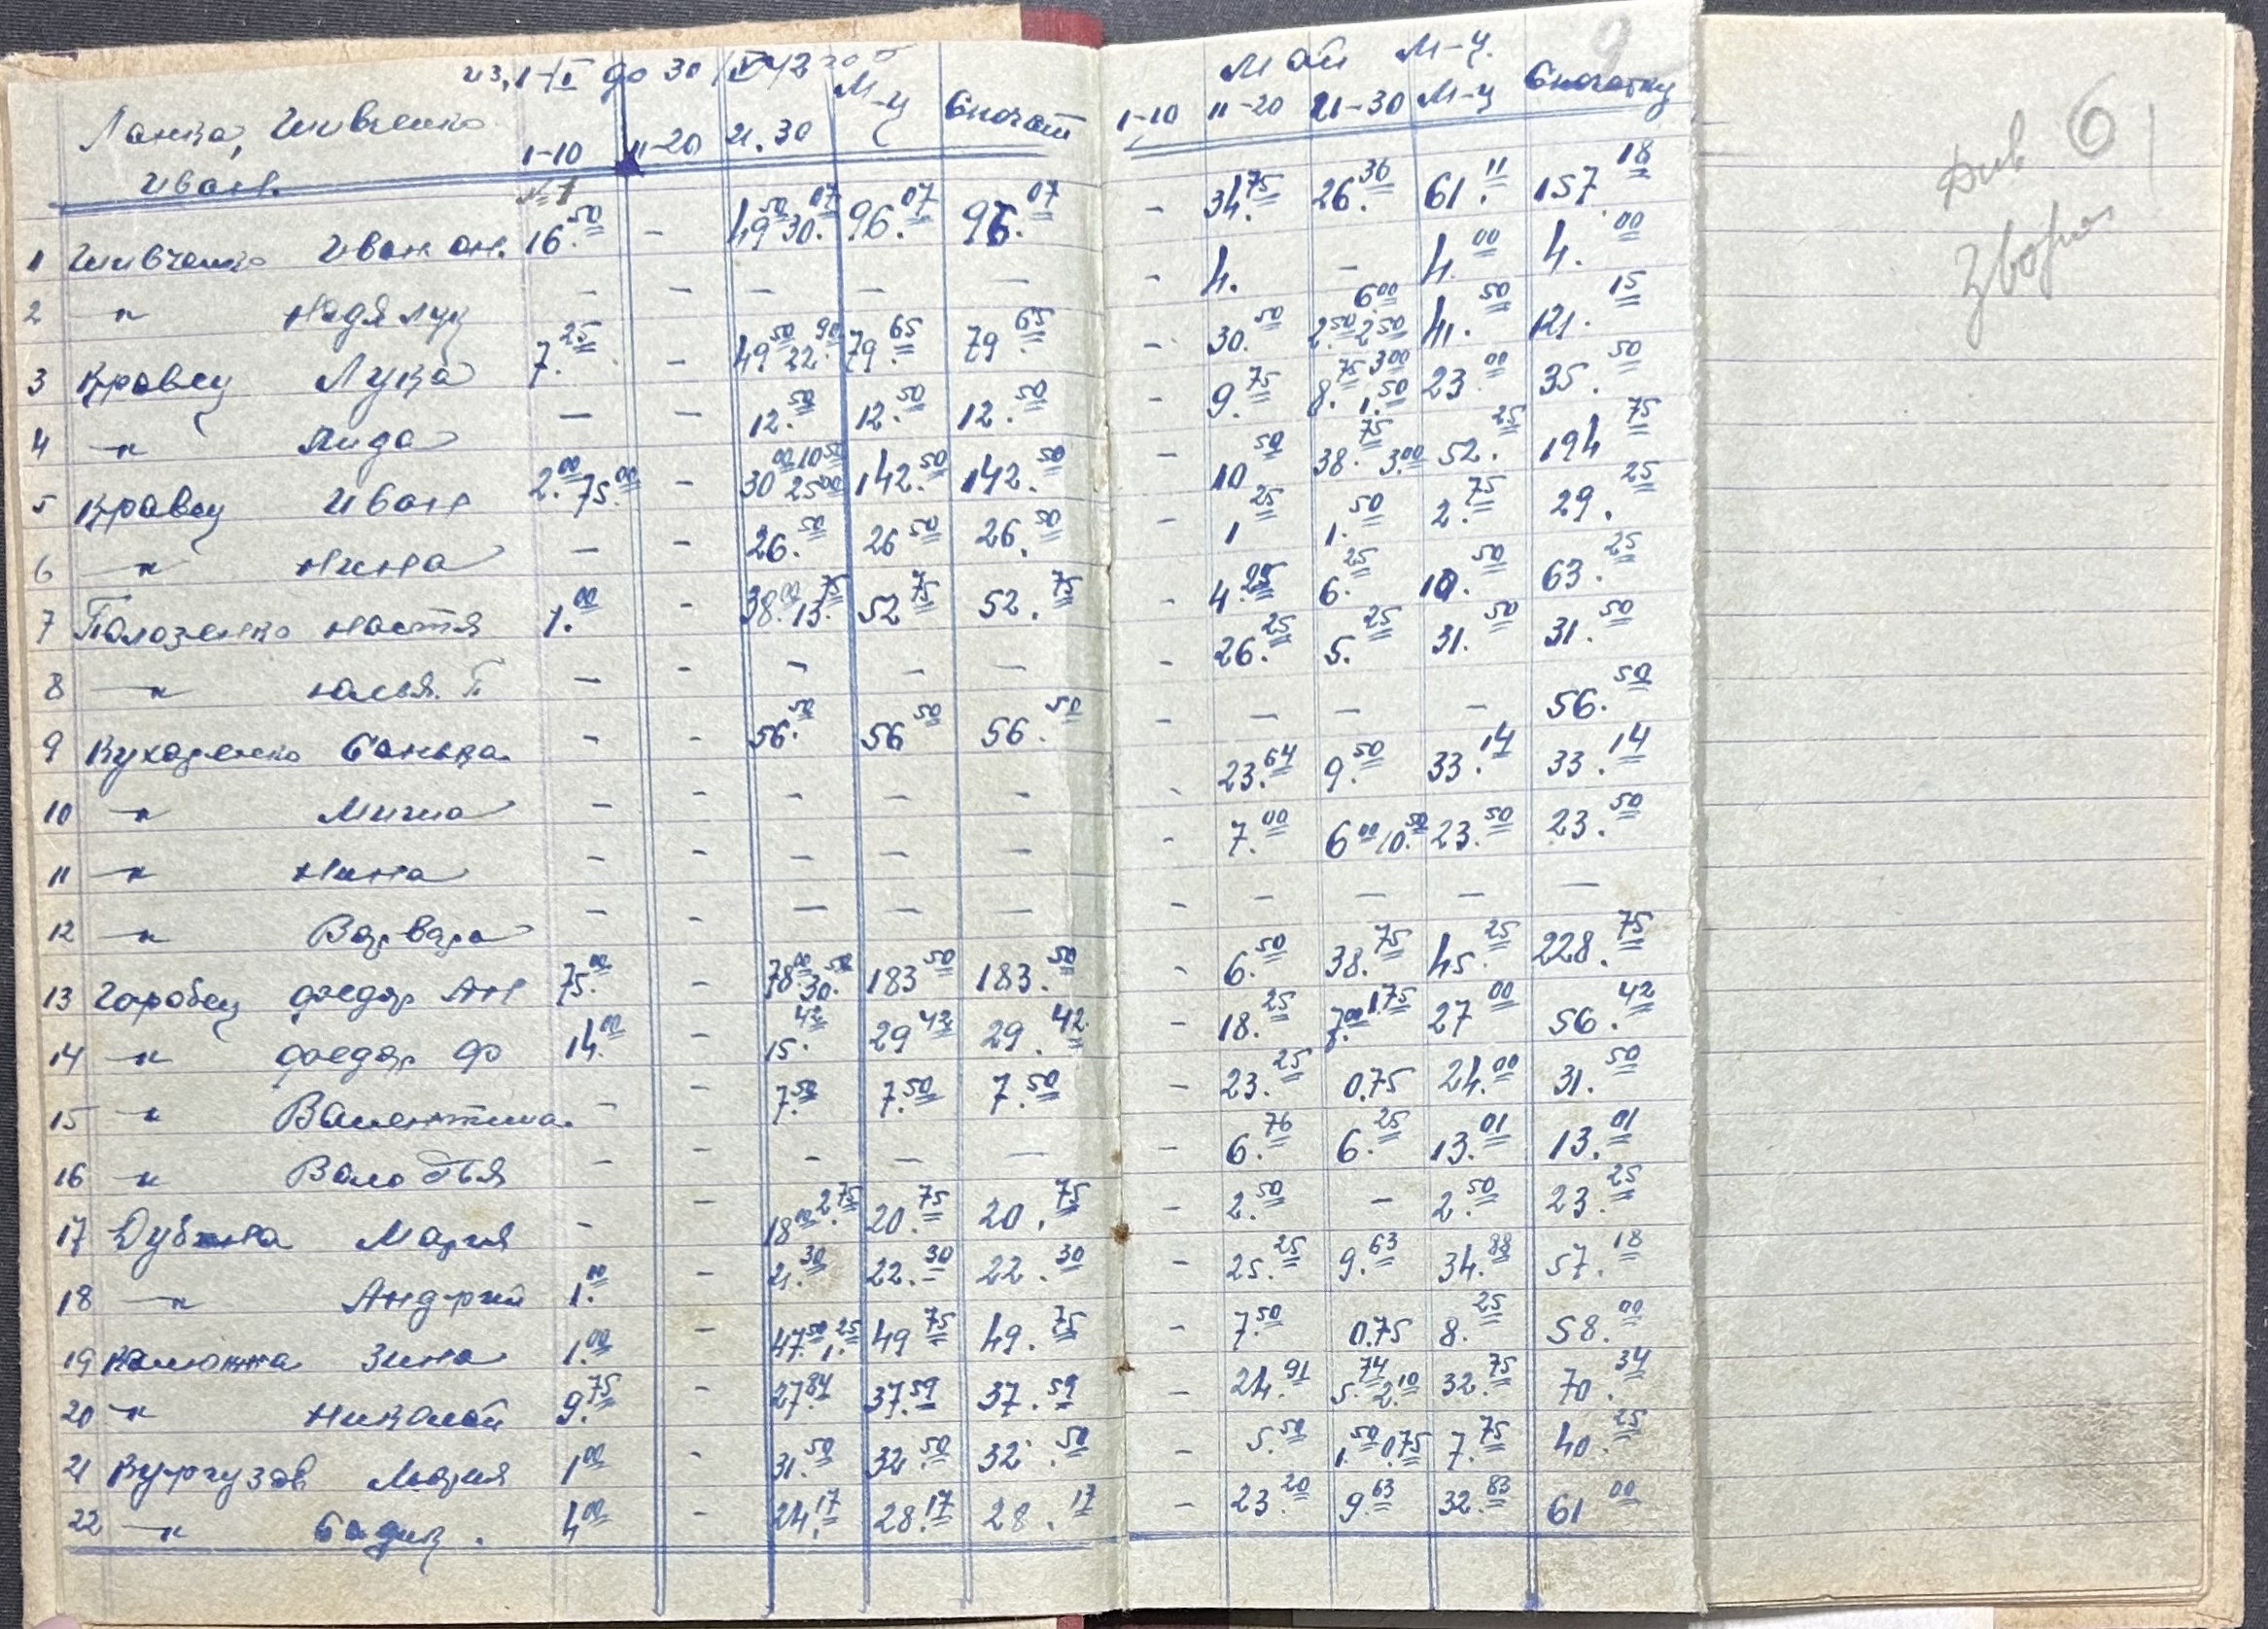 из, 1-/I до 30 /IV 42
Ланка, Шивченко 1-10 11-20 21.30 М-ц Спочат
Иван. №1
1 Шивченко Иван Ан. 16.50 - 49.50 30.07 96.07 96.07
2 -"- Надя Лук - - - - -
3 Кравец Лука 7.25 - 49.50 22.90 79.65 79.65
4 -"- Лида - - 12.50 12.50 12.50
5 Кравец Иван 2.00 75.00 - 30.00 10.50 30 25.00 142.50 142.50
6 -"- Нина - - 26.50 26.50 26.50
7 Полозенко Настя 1.00 - 38.00 13.75 52.75 52.75
8 -"- П - - - - -
9 Кухаренко Санька - - 56.50 56.50 56.50
10 -"- Миша - - - - -
11 -"- Нина - - - - -
12 -"- Варвара - - - - -
13 Горобец Федор Ан 75.00 - 78.00 30.50 183.50 183.50
14 -"- Федор Ф 14.00 - 15.42 29.42 29.42
15 -"- Валентина - - 7.50 7.50 7.50
16 -"- Володья - - - - -
17 Мария - - 18.00 2.75 20.75 20.75
18 -"- Андрий 1.00 - 21.30 22.30 22.30
19 Калюжна Зина 1.00 - 47.50 1.25 49.75 49.75
20 -"- Николай 9.75 - 27.84 37.59 37.59
21 Кургузов Мария 1.00 - 31.50 32.50 32.50
22 -"- 4.00 - 24.17 28.17 28.17
9
Май М-ц.
1-10 11-20 21-30 М-ц Спочатку
- 34.75 26.36 61.11 157.18
- 4. - 4.00 4.00
- 30.50 6.00 2.50 2.50 41.50 121.15
- 9.75 8.75 3.00 1.50 23.00 35.50
- 10.50 38.75 3.00 52.25 194.75
- 1.25 1.50 2.75 29.25
- 4.25 6.25 10.50 63.25
- 26.25 5.25 31.50 31.50
- - - - 56.50
- 23.64 9.50 33.14 33.14
- 7.00 6.00 10.50 23.50 23.50
- - - - -
- 6.50 38.75 45.25 228.75
- 18.25 7.00 1.75 27.00 56.42
- 23.25 0.75 24.00 31.50
- 6.76 6.25 13.01 13.01
- 2.50 - 2.50 23.25
- 25.25 9.63 34.88 57.18
- 7.50 0.75 8.25 58.00
- 24.91 5.74 2.10 32.75 70.34
- 5.50 1.50 0.75 7.75 40.25
- 23.20 9.63 32.83 61.00
Див 6